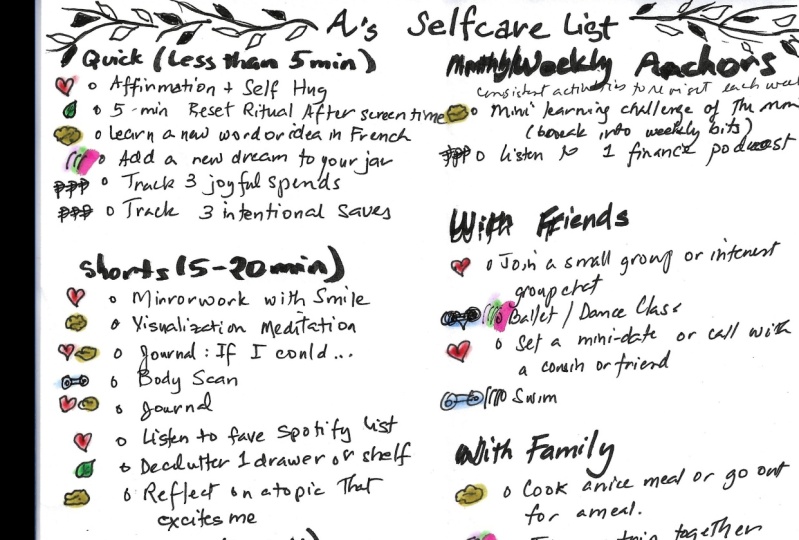 A's Selfcare List
Quick (Less than 5min)
Affirmation + Self Hug
5-min Reset Ritual After screen time
Learn a new word or idea in French
Add a new dream to your jar
Track 3 joyful spends
Track 3 intentional Saves
Shorts (5-20min)
Mirrorwork with Smile
Visualization Meditation
Journal: If I could...
Body Scan
Journal
Listen to fave Spotify list
Declutter 1 drawer or shelf
Reflect on a topic That
excites me
Monthly/Weekly Anchors
consistent activities to each week
Mini learning challenge of The
(break into weekly bits)
Listen to 1 finance podcast
With Friends
Join a small group or interest
group chat
Ballet / Dance Class
Set a mini-date or call with
a cousin or friend
Swim
With Family
Cook a nice meal or go out
for a meal.
trip together